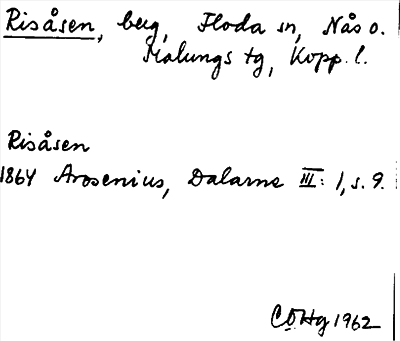 Risåsen, berg, Floda sn, Nås o.
Malungs tg, Kopp. l.
Risåsen
1864 Arosenius, Dalarne III: 1, s. 9.
COHg 1962